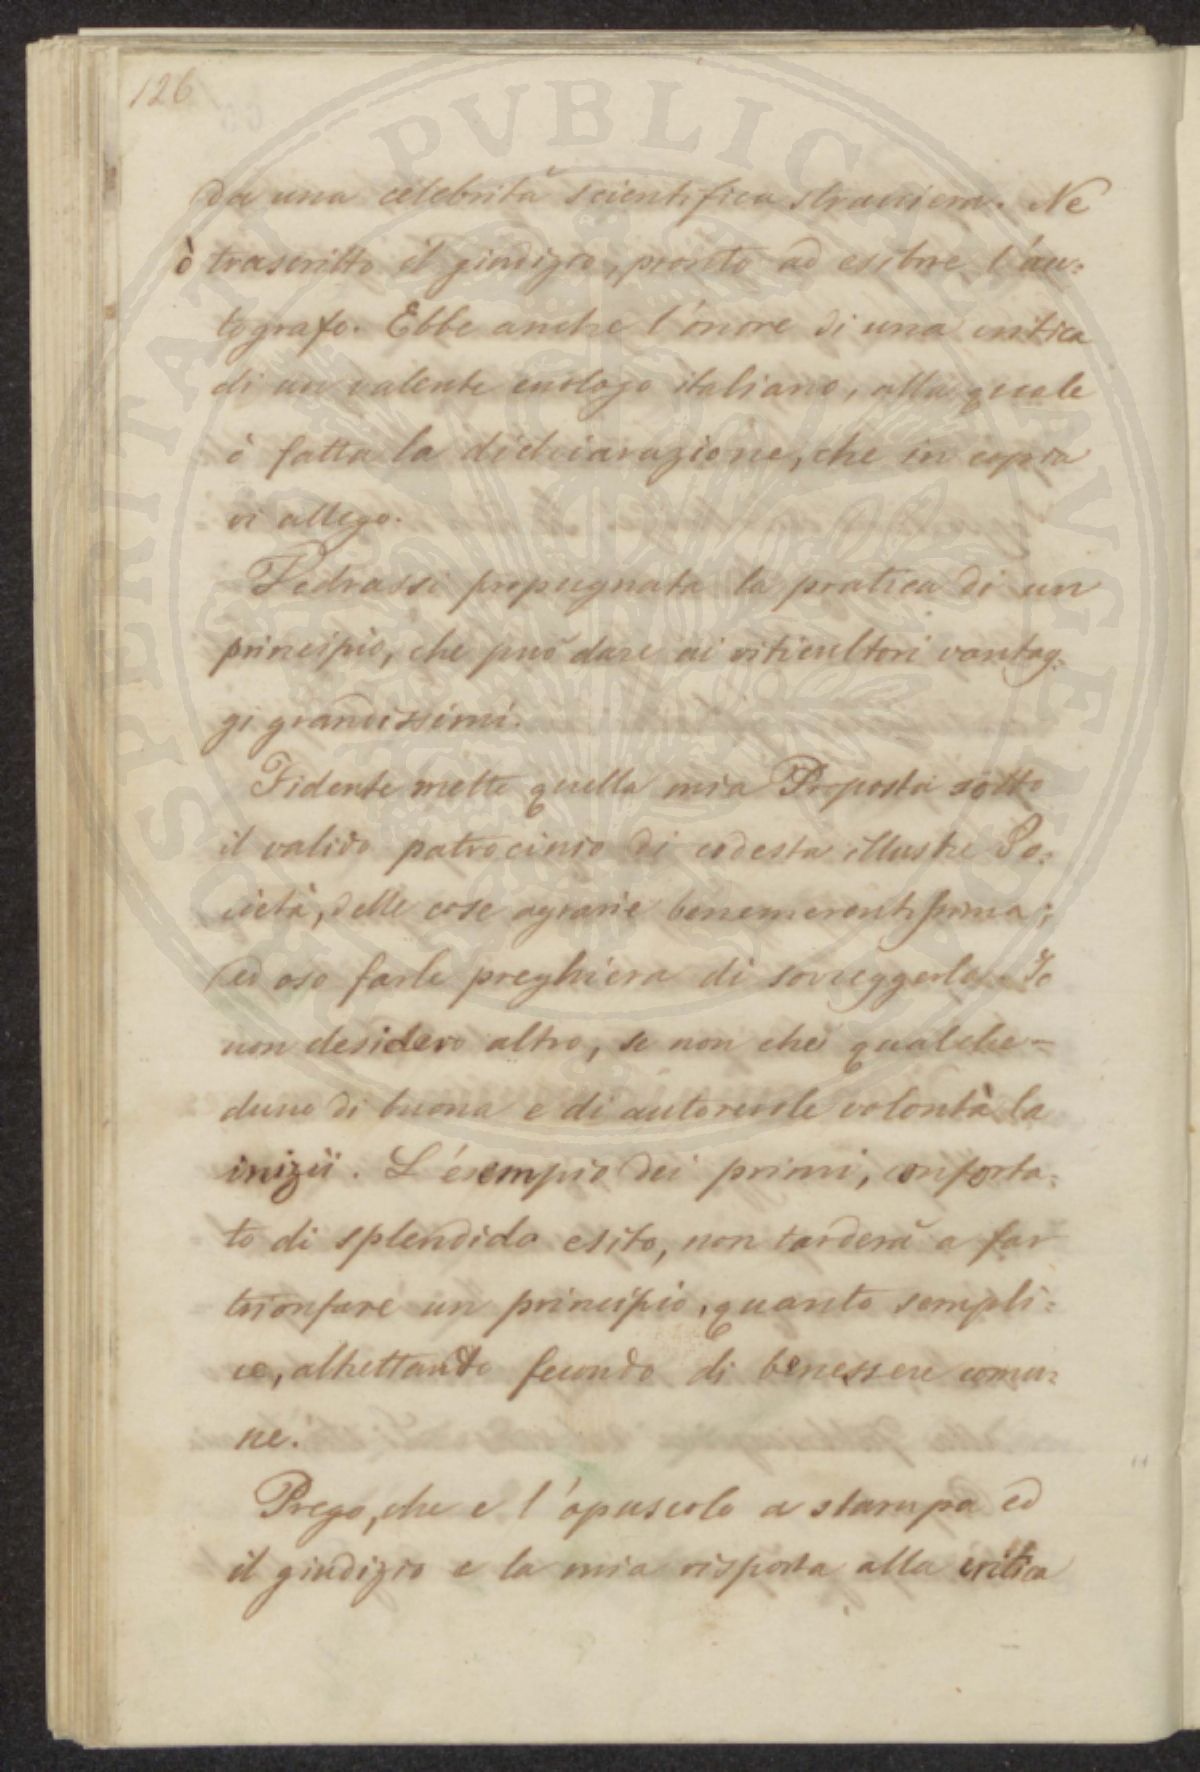 126
da una celebrità scientifica straniera. Ne
ò trascritto il giudizio, pronto ad esibire l'au=
tografo. Ebbe anche l'onore di una critica
di un valente enologo italiano, alla quale
è fatta la dichiarazione, che in copia
vi allego.
Vedrassi propugnata la pratica di un
principio, che può dare ai viticultori vantag=
gi grandissimi.
Fidente metto quella mia Proposta sotto
il valido patrocinio di codesta illustre So=
cietà, delle cose agrarie benemerentissima;
ed oso farle preghiera di sorreggerla. Io
non desidero altro, se non che qualche=
duno di buona e di autorevole volontà la
inizii. L'esempio dei primi, conforta=
to di splendido esito, non tarderà a far
trionfare un principio, quanto sempli=
ce, altrettanto fecondo di benessere comu=
ne.
Prego, che e l'opuscolo a stampa ed
il giudizio e la mia risposta alla critica
PVBLICAE